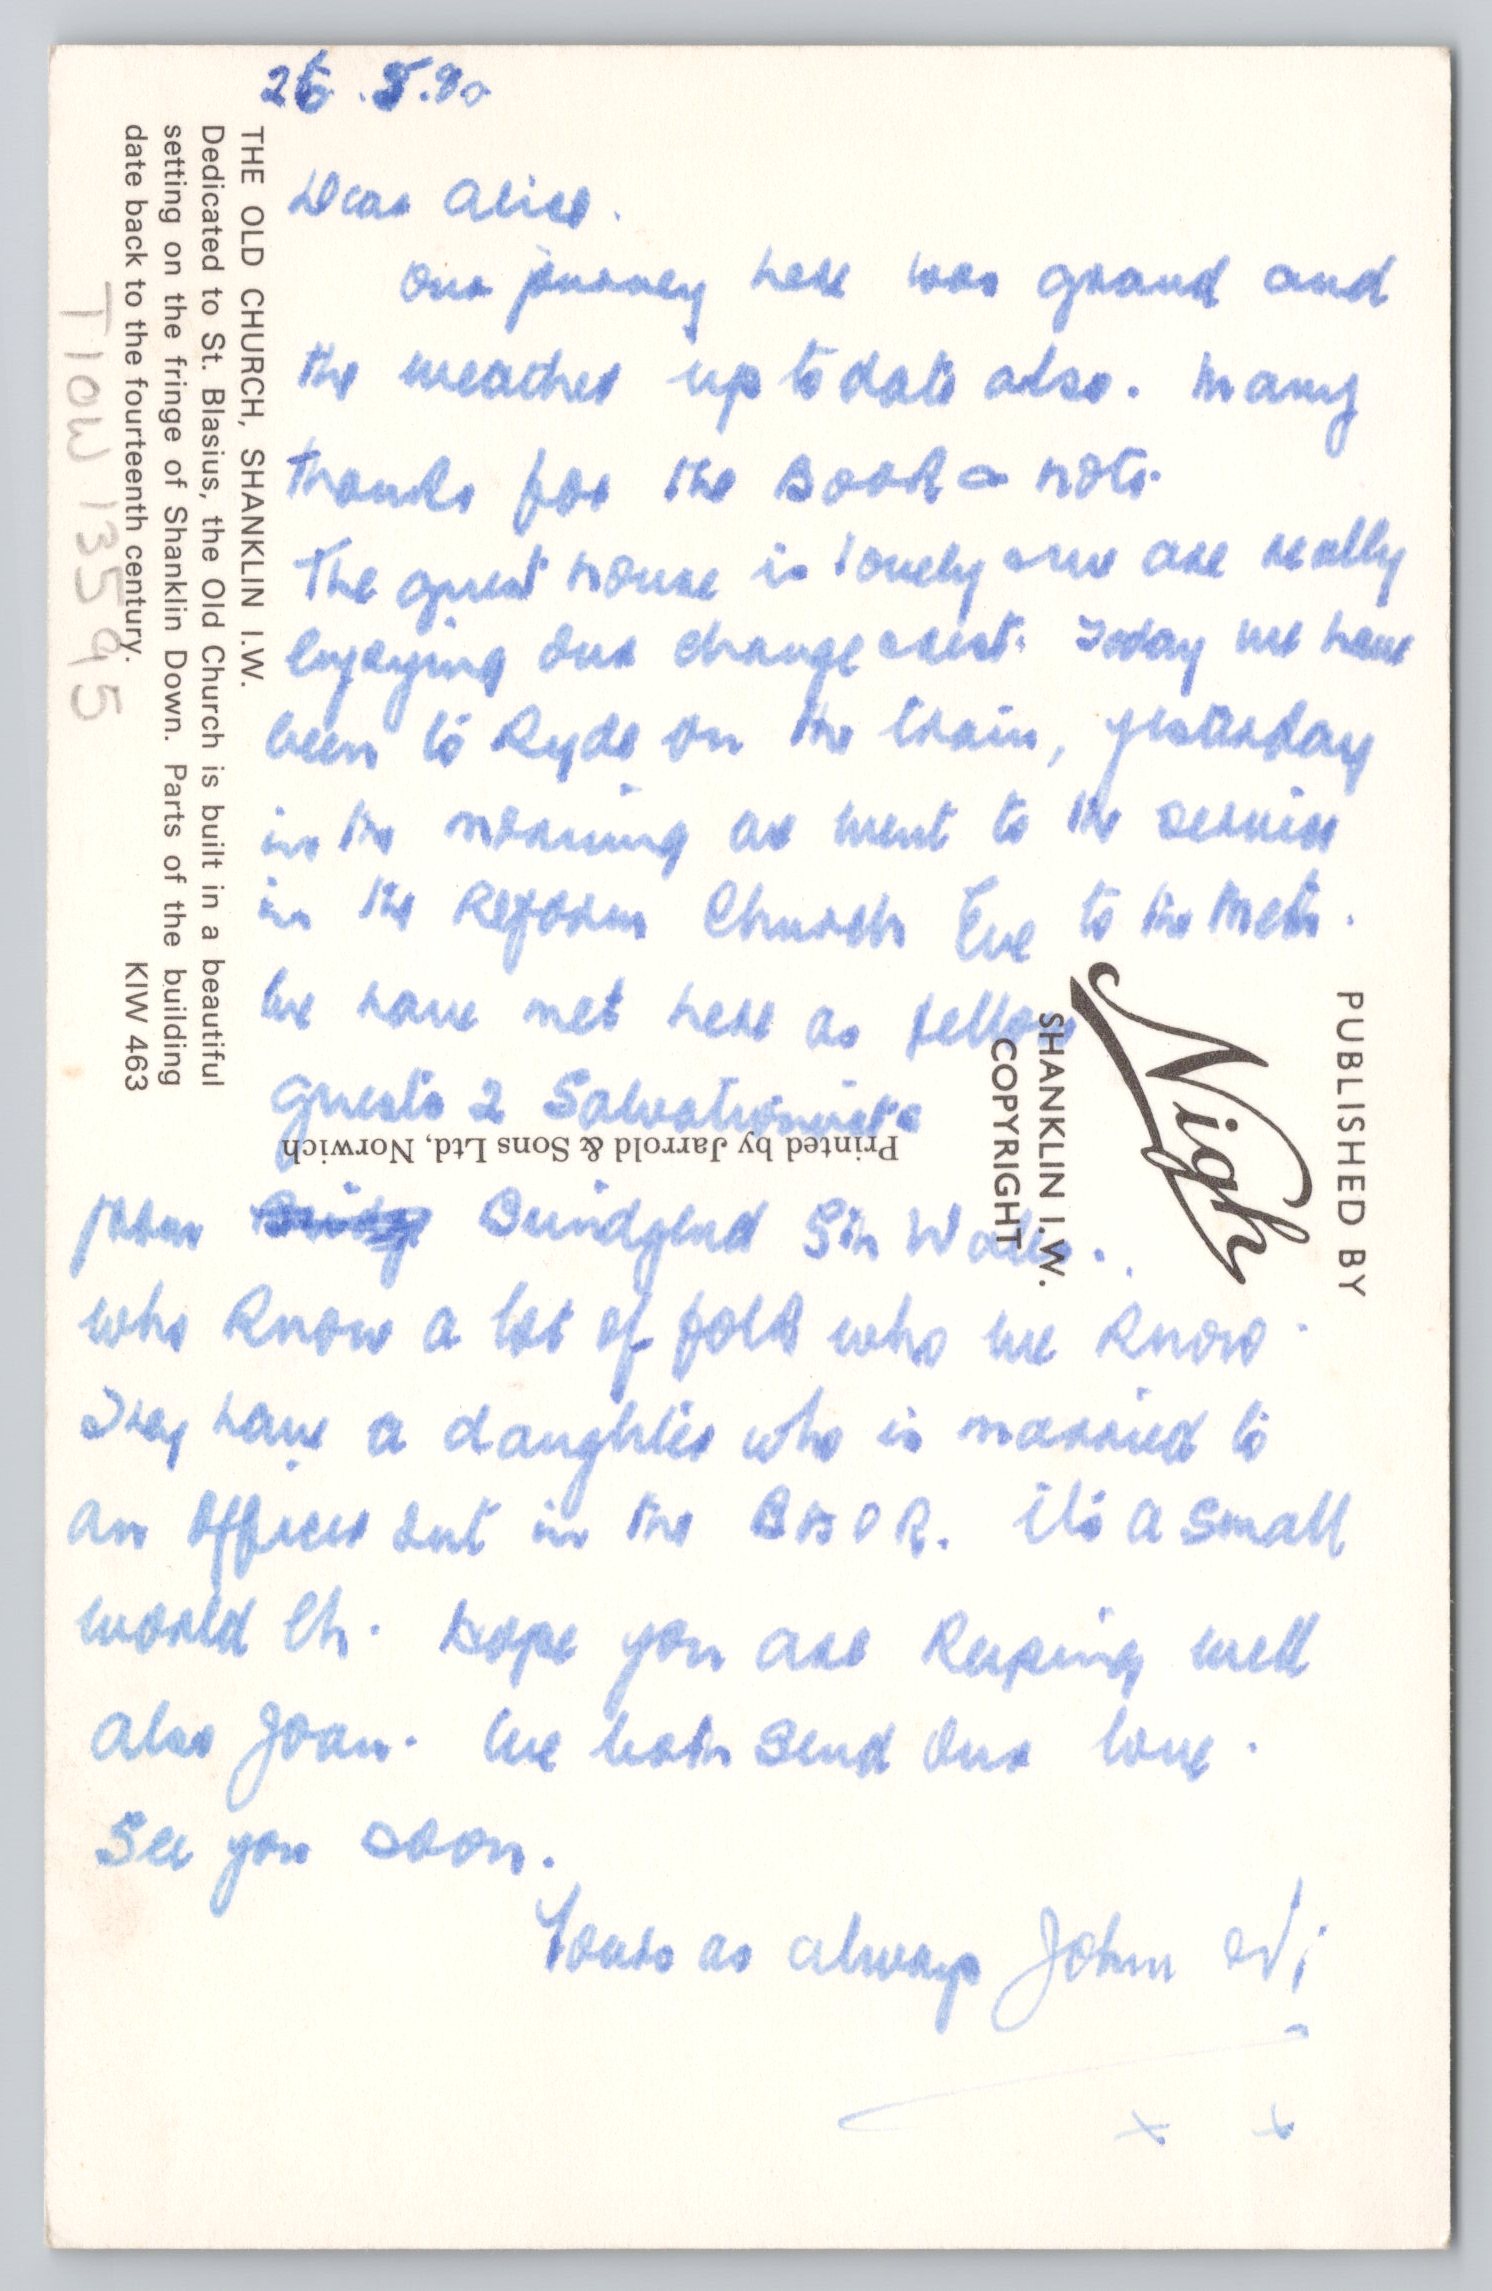 26.5.80
Dear Alice.
Our journey here was grand and
the weather up to date also. Many
thanks for the Book & note.
The guest house is lovely & we are really
enjoying our change & rest. Today we have
been to Ryde on the train, yesterday
in the morning we went to the service
in the Reform Church Eve to the Meth.
We have met here as fellow
guests 2 Salvationists
from Bridgend Sth Wales.
who know a lot of folk who we know.
They have a daughter who is married to
an Officer out in the BAOR. it's a small
world Eh. Hope you are keeping well
also Joan. We both send our love.
See you soon.
Yours as always John & Vi
x x
THE OLD CHURCH, SHANKLIN I.W.
Dedicated to St. Blasius, the Old Church is built in a beautiful
setting on the fringe of Shanklin Down. Parts of the building
date back to the fourteenth century. KIW 463
TIOW 13595
PUBLISHED BY
Nigh
SHANKLIN I.W.
COPYRIGHT
Printed by Jarrold & Sons Ltd, Norwich